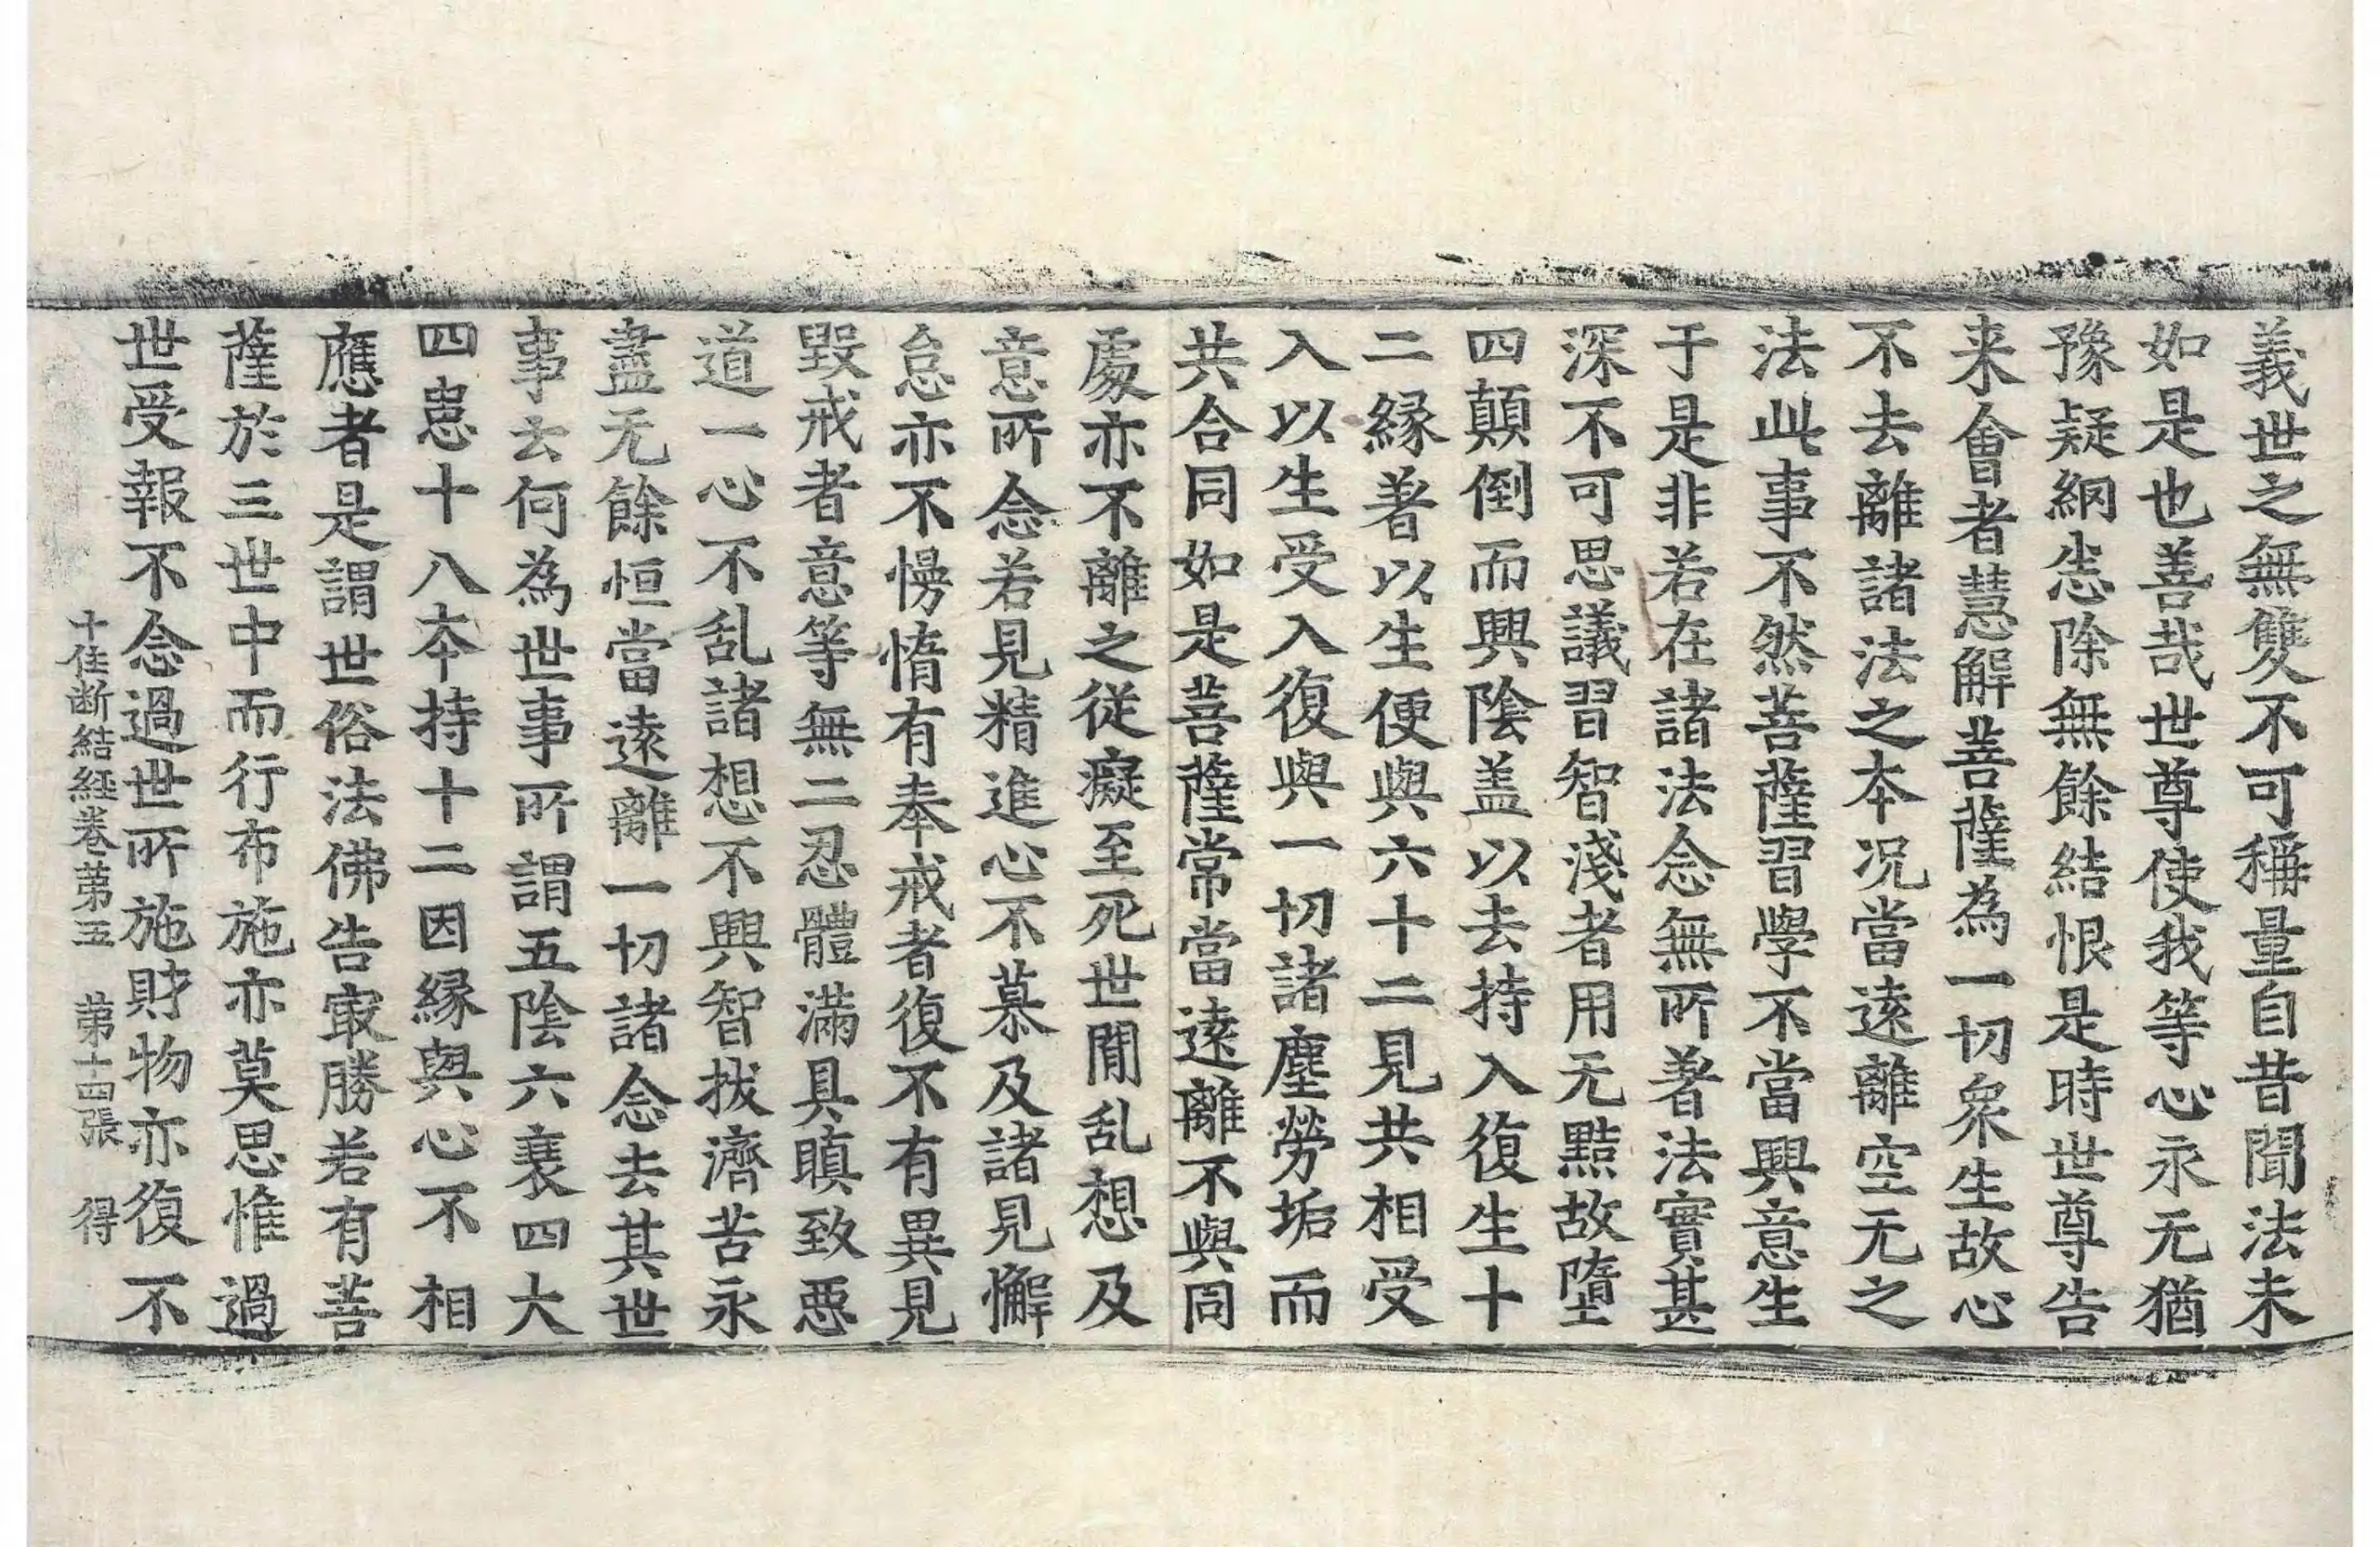 義世之無雙不可稱量自昔聞法未
如是也善哉世尊使我等心永无猶
豫疑網悉除無餘結恨是時世尊告
来會者慧解菩薩為一切衆生故心
不去離諸法之本况當遠離空无之
法此事不然菩薩習學不當興意生
于是非若在諸法念無所著法實甚
深不可思議習智淺者用无黠故墮
四顛倒而興陰盖以去持入復生十
二緣著以生便與六十二見共相受
入以生受入復與一切諸塵勞垢而
共合同如是菩薩常當遠離不與同
處亦不離之從癡至死世間乱想及
意所念若見精進心不慕及諸見懈
怠亦不慢惰有奉戒者復不有異見
毀戒者意等無二忍體滿具瞋致惡
道一心不乱諸想不興智拔濟苦永
盡无餘恒當遠離一切諸念去其世
事云何為世事所謂五陰六衰四大
四患十八本持十二因緣與心不相
應者是謂世俗法佛告㝡勝若有菩
薩於三世中而行布施亦莫思惟過
世受報不念過世所施財物亦復不
十住断結経卷苐五 苐十四張 得